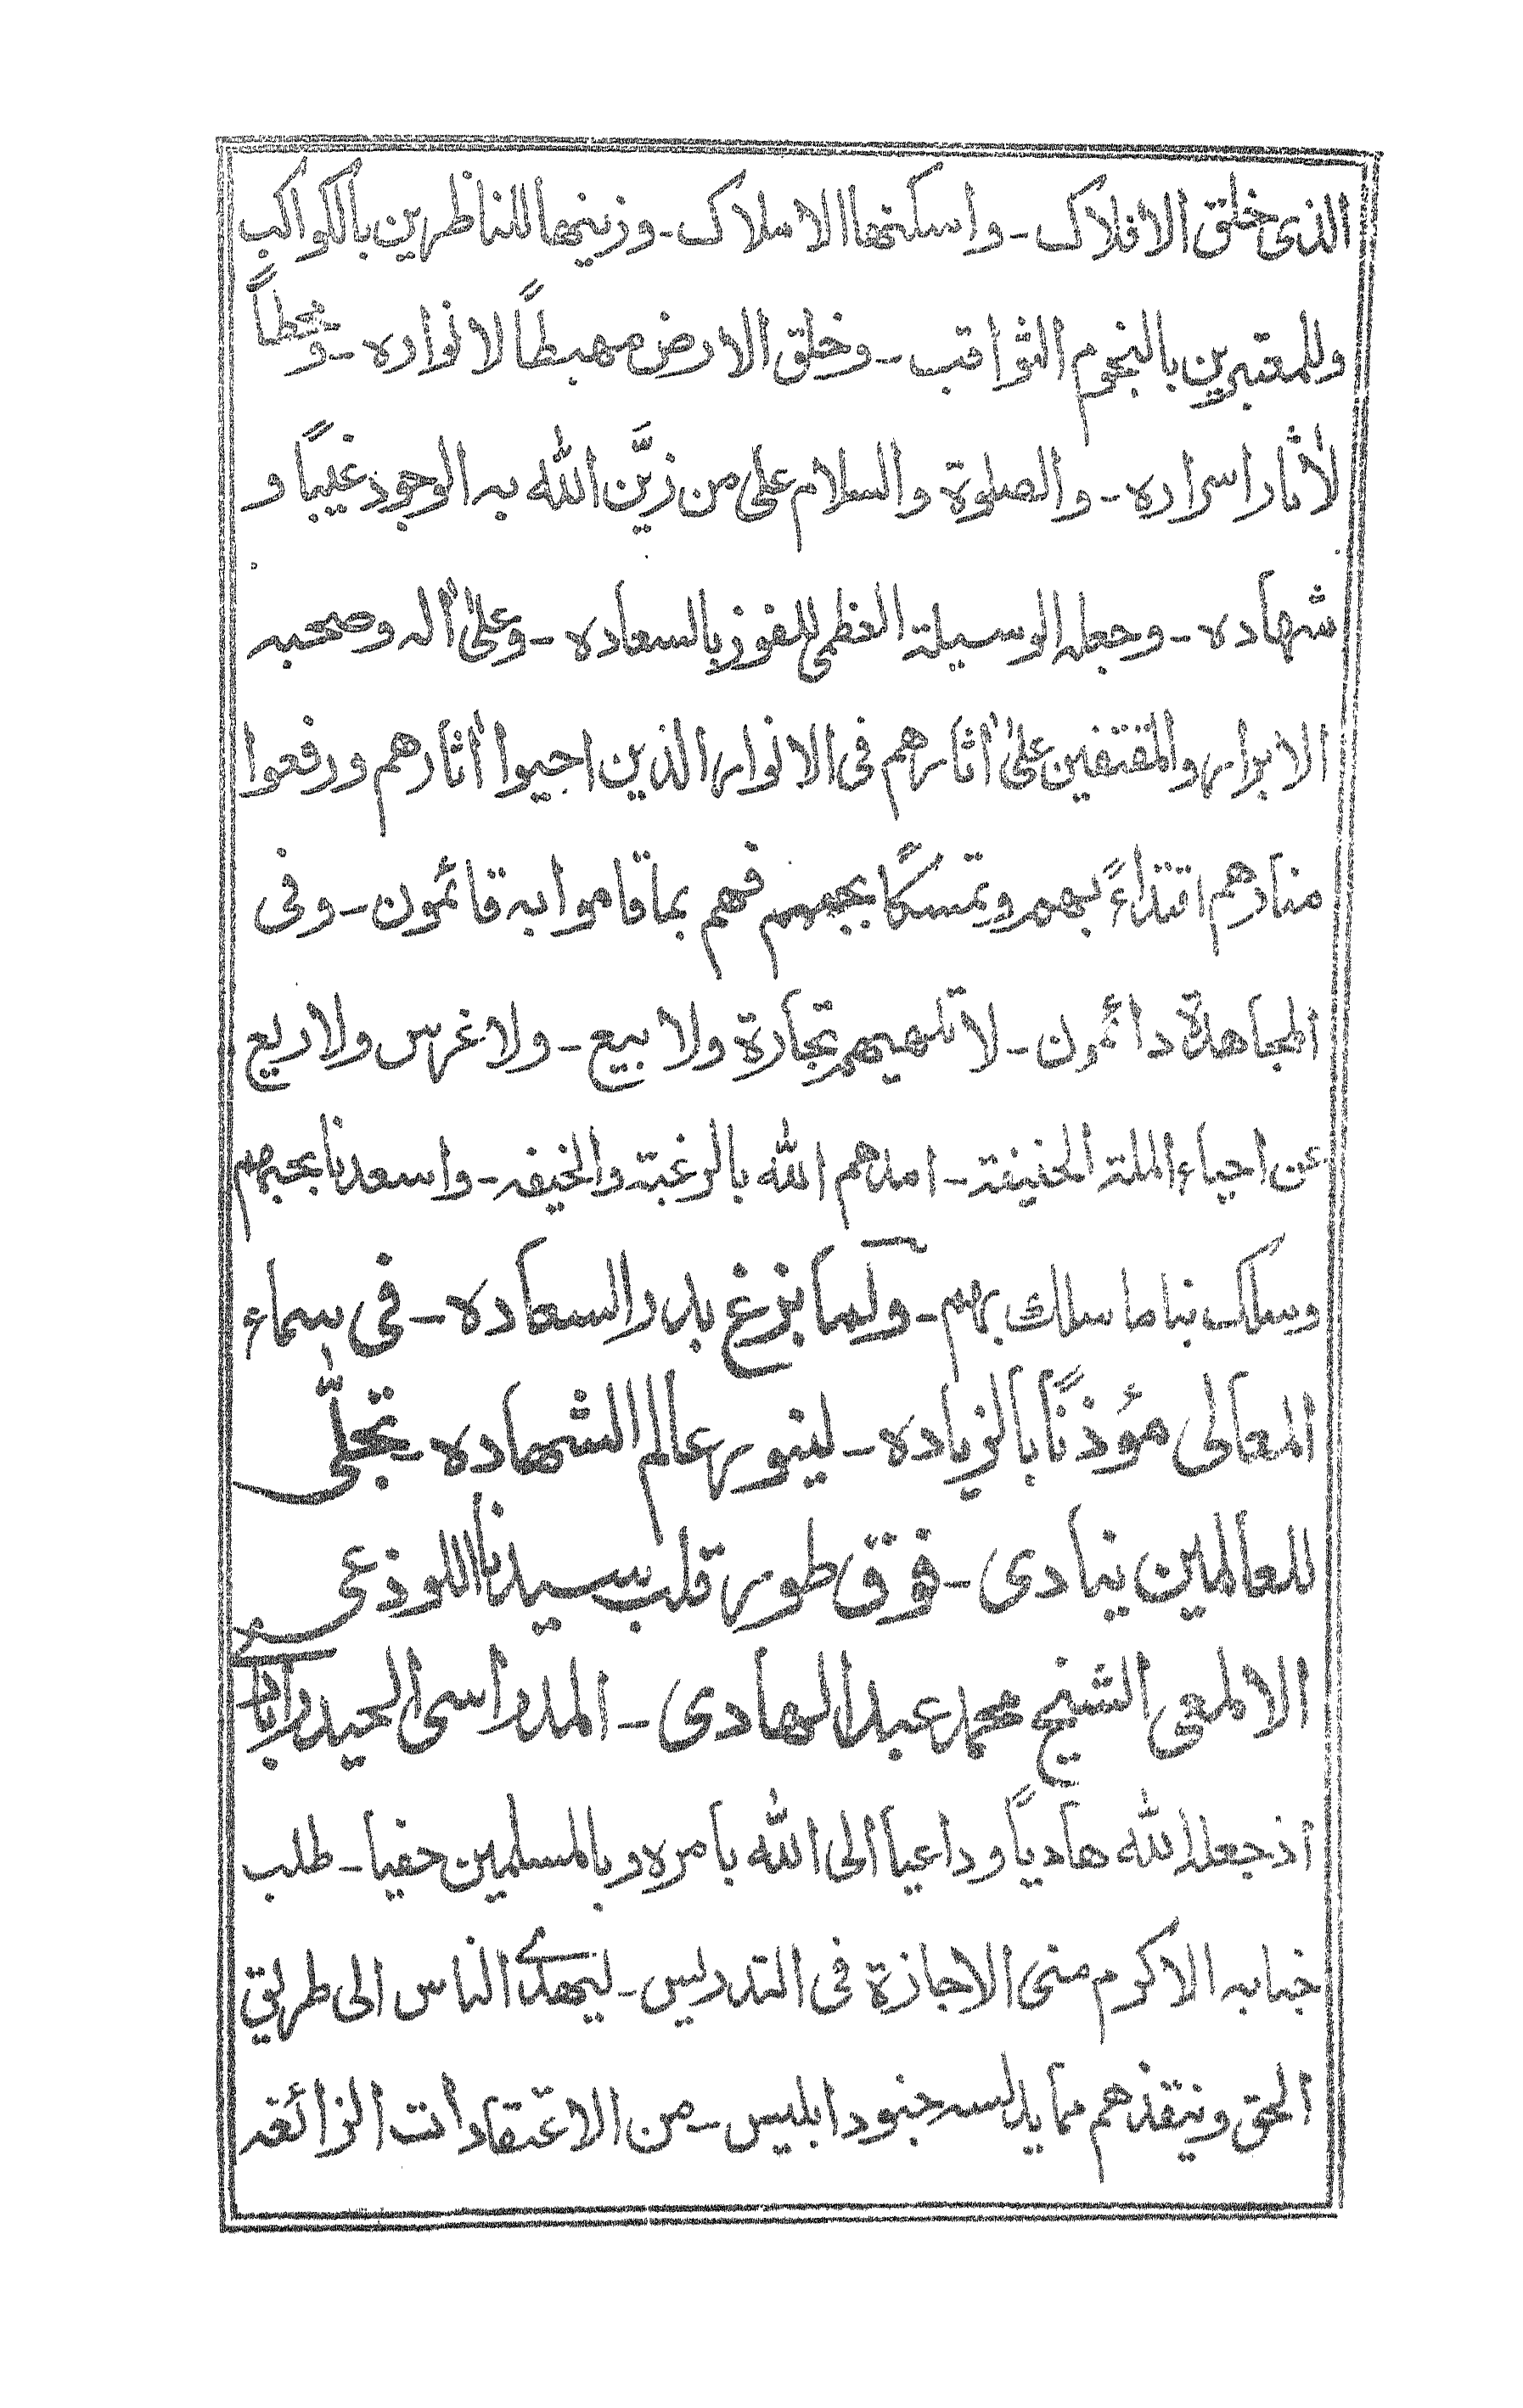 الذی خلق الافلاک ـ واسکنها الاملاک ـ وزینها للناظرین بالکواکب
وللمعتبرین بالنجوم الثواقب ـ وخلق الارض مهبطاً لانواره ـ ومحطاً
لاٰثار اسراره ـ والصلوة والسلام علی من زیَّن الله به الوجود غیباً و
شهاده ـ وجعله الوسیلة العظمی للفوز بالسعاده ـ وعلیٰ اٰله وصحبه
الابرار والمقتفین علیٰ اٰثارهم فی الانوار الذین احیوا اٰثارهم ورفعوا
منارهم اقتداءً بهم وتمسکاً بحبهم فهم بما قاموا به قائمون ـ وفی
المجاهدة دائمون ـ لا تلهیهم تجارة ولا بیع ـ ولا غرس ولا ریع
عن احیاء الملة الحنیفة ـ امدهم الله بالرغبة والخیفه ـ واسعدنا بحبهم
وسلک بنا ما سلك بهم ـ ولما بزغ بدر السعاده ـ فی سماء
المعالی مؤذناً بالزیاده ـ لینور عالم الشهاده ـ تجلّٰی
للعالمین ینادی ـ فوق طور قلب سیدنا اللوذعی
الالمعی الشیخ محمد عبد الهادی ـ المدراسی الحیدرابادی
اذ جعله الله هادیاً وداعیا الی الله بامره وبالمسلمین حفیا ـ طلب
جنابه الاکرم منی الاجازة فی التدریس ـ لیهدی الناس الی طریق
الحق وینقذهم مما یدلسه جنود ابلیس ـ من الاعتقادات الزائغه